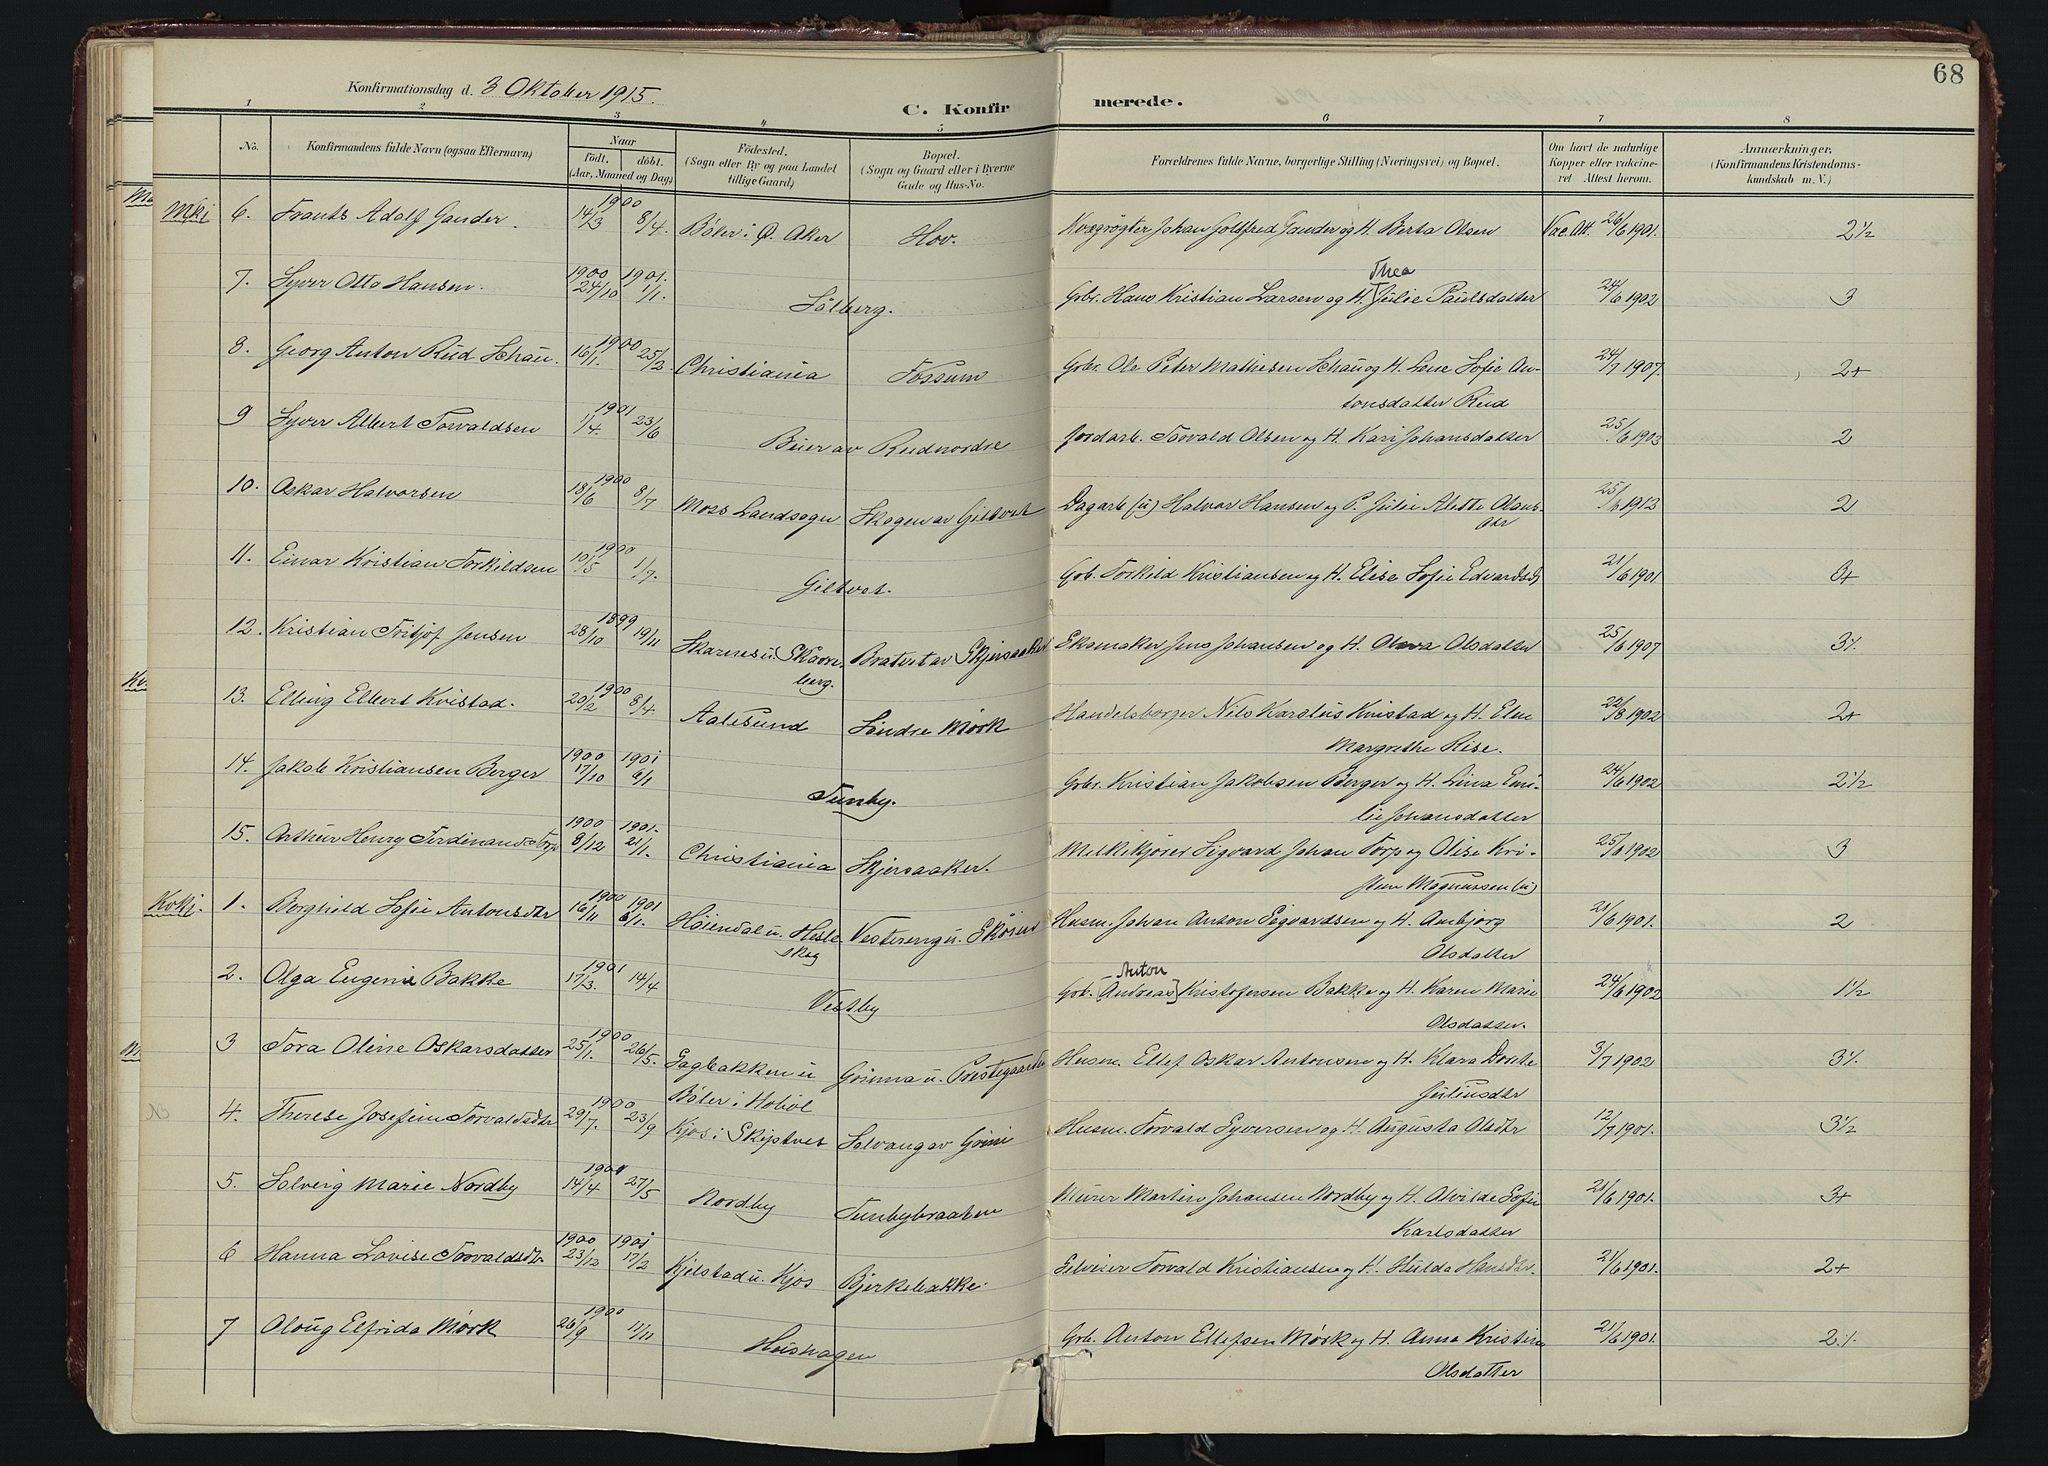 68
Konfirmationsdag d. 3 Oktober 1915.
C. Konfirmerede.
1 2 3 4 5 6 7 8
No. Konfirmandens fulde Navn (ogsaa Efternavn) Naar født. døbt. (Aar, Maaned og Dag) Fødested. (Sogn eller By og paa Landet tillige Gaard) Bopæl. (Sogn og Gaard eller i Byerne Gade og Hus-No. Forældrenes fulde Navne, borgerlige Stilling (Næringsvei) og Bopæl. Om havt de naturlige Kopper eller vaccineret Attest herom. Anmærkninger. (Konfirmandens Kristendomskundskab m. V.)
Mki 6. Frants Adolf Gander. 1900 14/3 8/4. Bøler i Ø. Aker Hov. Kvægrøgter Johan Gottfred Gander og H. Berta Olsen Vac. Att. 26/6 1901. 2½
7. Syver Otto Hansen. 1900 24/10 1901. 1/1. Solberg. Gbr. Hans Kristian Larsen og H. [Thea Julie Paulsdatter 24/6 1902 3
8. Georg Anton Rud Schau. 1900 16/1. 25/2 Christiania Fossum Gbr. Ole Peter Mathisen Schau og H. Lene Sofie An-
tonsdatter Rud 24/7 1907. 2+
9 Syver Albert Torvaldsen 1901 1/4. 23/6 Buer av Rud nordre Jordarb. Torvald Olsen og H. Kari Johansdatter 25/6 1903 2
10. Oskar Halvorsen 1900 18/6 8/7 Moss Landsogn Skogen av Giltvet Dagarb (u) Halvor Hansen og P. Julie Alette Olaus-
dtr 25/6 1913 2
11. Einar Kristian Torkildsen 1900 10/5 1/7. Giltvet. Gb. Torkild Kristiansen og H. Elise Sofie Edvardsd 21/6 1901 3+
12. Kristian Fritjof Jensen 1899 28/10 19/11 Skarnes u. Skavn
berg. Bratvet av Skjersaaker Eksmaker Jens Johansen og H. Olava Olsdatter 25/6 1907 3%
13. Elling Elbert Kvistad. 1900 20/2 8/4 Aalesund Søndre Mørk Handelsborger Nils Karolus Kvistad og H. Elne
Margrethe Rise. 22/8 1902 2+
14. Jakob Kristiansen Berger 1900 17/10 1901 6/1 Tunby. Gbr. Kristian Jakobsen Berger og H. Lina Emi-
lie Johansdatter 24/6 1902 2½
15. Arthur Henry Ferdinand Torp 1900 8/12 1901. 21/1. Christiania Skjersaaker. Melkekjører Sigvard Johan Torp og Olise Kri-
stine Magnussen (u) 25/6 1902 3
Kvki. 1. Borghild Sofie Antonsdtr 1900 16/11 1901 6/1. Høiendal u. Hesle
skog Vestereng u. Skøien Husm. Johan Anton Sigvardsen og H. Ambjørg
Olsdatter 21/6 1901. 2
2. Olga Eugenie Bakke 1901 17/3. 14/4 Vestby Gb. [Andreas] Anton Kristofersen Bakke og H. Karen Marie
Olsdatter. 24/6 1902 1½
3 Tora Oline Oskarsdatter 1900 25/1. 26/5. Sagbakken u
Bøler i Hobøl Grinna u. Prestegaarde Husm. Ellef Oskar Antonsen og H. Klara Dorthe
Juliusdtr 3/7 1902 3%
4. Therese Josefine Torvaldsdtr 1900 29/7. 23/9 Kjos i Skiptvet Solvang av Grini Husm. Torvald Syversen og H. Augusta Olsdtr 12/7 1901. 3½
5. Solveig Marie Nordby 1900 14/4 27/5 Nordby Tunbybraaten Murer Martin Johansen Nordby og H. Alvilde Sofie
Karlsdatter 21/6 1901. 3+
6 Hanna Lovise Torvaldsdtr 1900 23/12 1901 17/2 Kjelstad u. Kjos Bjerkebakke. Selveier Torvald Kristiansen og H. Hulda Hansdtr. 21/6 1901. 2+
7 Aloug Elfrida Mørk 1900 26/9 11/11 Heishagen Grb. Anton Ellefsen Mørk og H. Anna Kristine
Olsdatter 21/6 1901. 2%